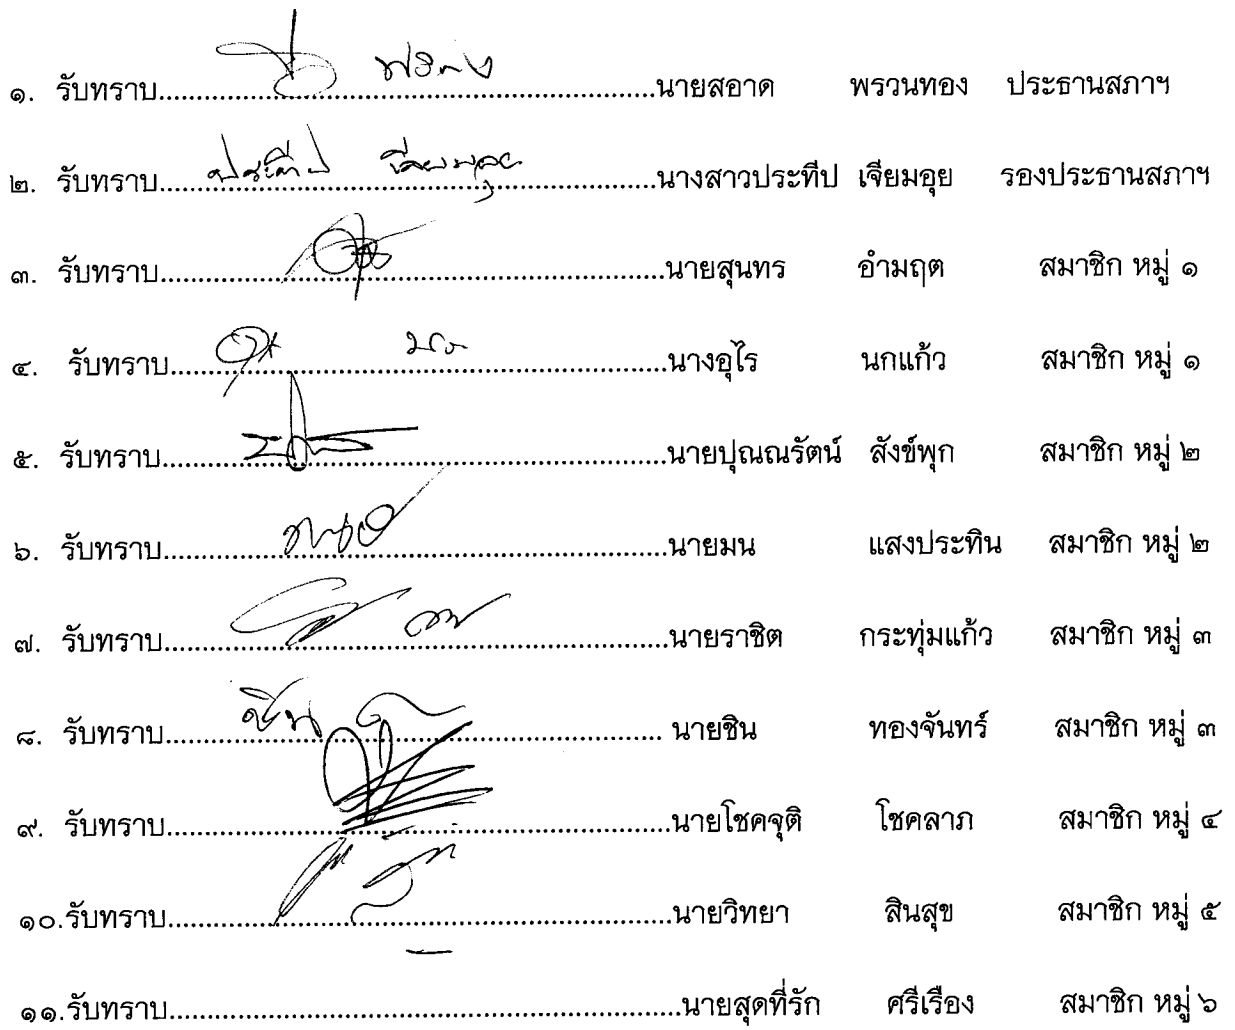 ๑. รับทราบ..........................................................นายสอาด พรวนทอง ประธานสภาฯ
๒. รับทราบ ประทีป เจียมอุย นางสาวประทีป เจียมอุย รองประธานสภาฯ
๓. รับทราบ..........................................................นายสุนทร อำมฤต สมาชิก หมู่ ๑
๔. รับทราบ..........................................................นางอุไร นกแก้ว สมาชิก หมู่ ๑
๕. รับทราบ..........................................................นายปุณณรัตน์ สังข์พุก สมาชิก หมู่ ๒
๖. รับทราบ..........................................................นายมน แสงประทิน สมาชิก หมู่ ๒
๗. รับทราบ..........................................................นายราชิต กระทุ่มแก้ว สมาชิก หมู่ ๓
๘. รับทราบ..........................................................นายชิน ทองจันทร์ สมาชิก หมู่ ๓
๙. รับทราบ..........................................................นายโชคจุติ โชคลาภ สมาชิก หมู่ ๔
๑๐.รับทราบ..........................................................นายวิทยา สินสุข สมาชิก หมู่ ๕
๑๑.รับทราบ..........................................................นายสุดที่รัก ศรีเรือง สมาชิก หมู่ ๖